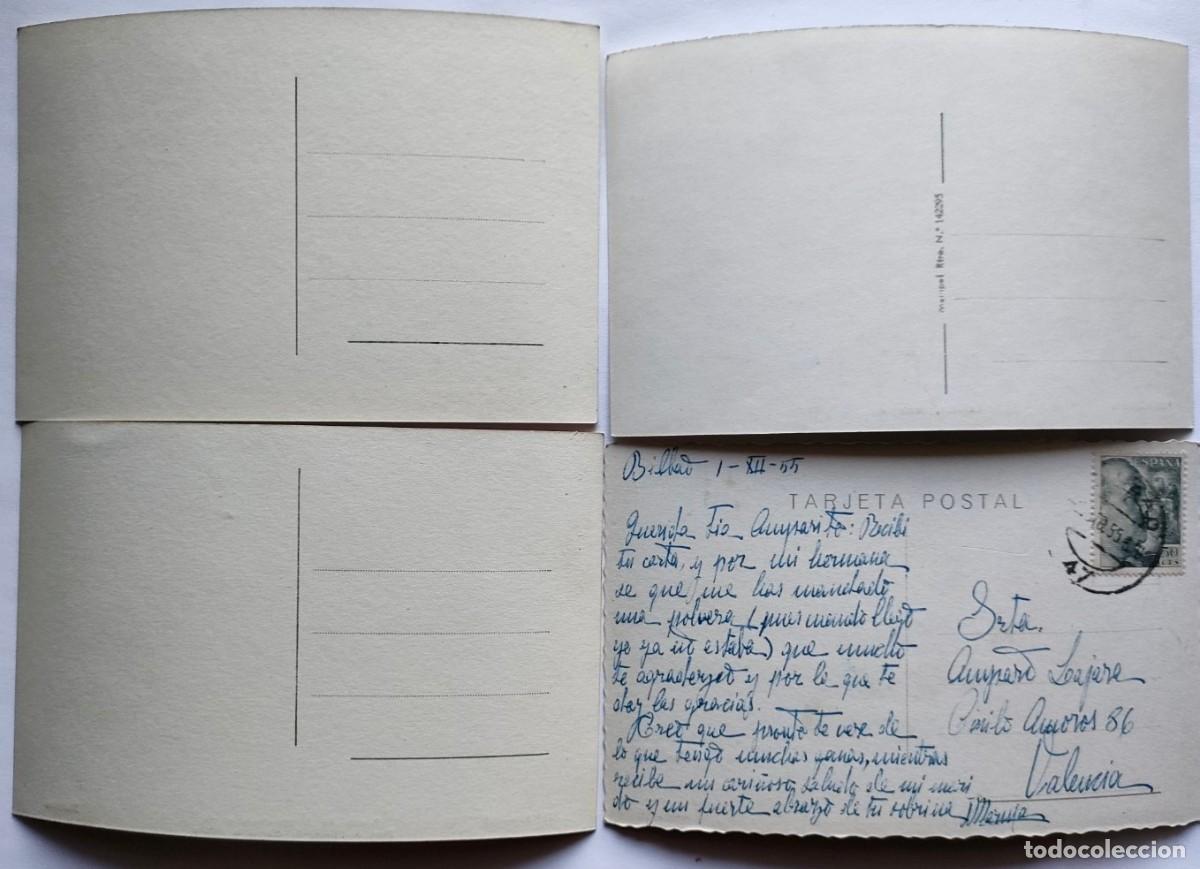 Maripel Rtro. N.º 142295
Bilbao 1-XII-55
TARJETA POSTAL
ESPAÑA
Querida Tia Amparito: Recibi
tu carta, y por mi hermana
se que me has mandado
una polvera (pues cuando llegó
yo ya no estaba) que mucho
te agradezco y por lo que te
doy las gracias.
Creo que pronto te vere de
lo que tengo muchas ganas, mientras
recibe un cariñoso saludo de mi mari
do y un fuerte abrazo de tu sobrina Maruja
Srta.
Amparo Lajara
Cirilo Amoros 86
Valencia
47
todocoleccion